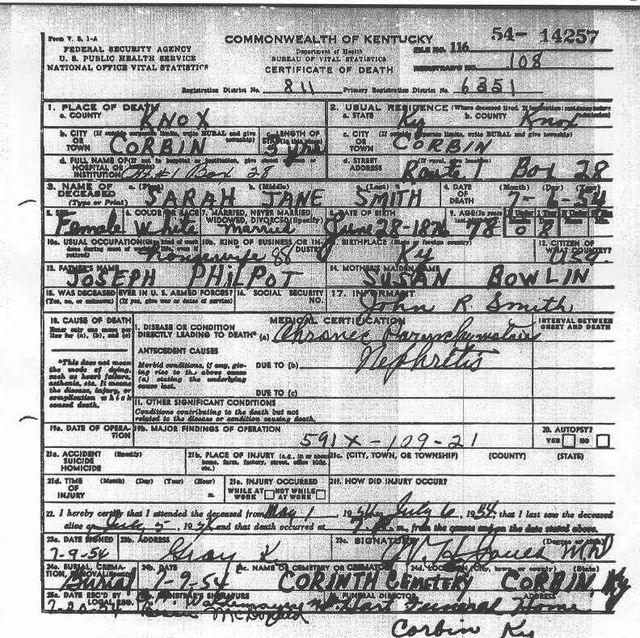 Form V. S. 1-A
COMMONWEALTH OF KENTUCKY
FEDERAL SECURITY AGENCY
U. S. PUBLIC HEALTH SERVICE
NATIONAL OFFICE VITAL STATISTICS
Department of Health
BUREAU OF VITAL STATISTICS
CERTIFICATE OF DEATH
FILE NO. 116 54- 14257
REGISTRAR'S NO. 108
Registration District No. 811 Primary Registration District No. 6351
1. PLACE OF DEATH
a. COUNTY KNOX
2. USUAL RESIDENCE (Where deceased lived.
a. STATE Ky b. COUNTY Knox
b. CITY OR TOWN CORBIN
c. LENGTH OF STAY 3 yrs
c. CITY OR TOWN CORBIN
d. FULL NAME OF HOSPITAL OR INSTITUTION Rt #1 Box 28
d. STREET ADDRESS Route 1 Box 28
3. NAME OF DECEASED (Type or Print) a. (First) SARAH b. (Middle) JANE c. (Last) SMITH
4. DATE OF DEATH (Month) (Day) (Year) 7-6-54
5. SEX Female 6. COLOR OR RACE White 7. MARRIED, NEVER MARRIED, WIDOWED, DIVORCED (Specify) Married
8. DATE OF BIRTH June 28-1876 9. AGE 78 0 8
10a. USUAL OCCUPATION Housewife 10b. KIND OF BUSINESS OR INDUSTRY
11. BIRTHPLACE Ky 12. CITIZEN OF WHAT COUNTRY? USA
13. FATHER'S NAME JOSEPH PHILPOT
14. MOTHER'S MAIDEN NAME SUSAN BOWLIN
15. WAS DECEASED EVER IN U. S. ARMED FORCES? (Yes, no, or unknown) (If yes, give war or dates of service)
16. SOCIAL SECURITY NO.
17. INFORMANT John R Smith
18. CAUSE OF DEATH
Enter only one cause per line for (a), (b), and (c)
MEDICAL CERTIFICATION
INTERVAL BETWEEN ONSET AND DEATH
I. DISEASE OR CONDITION DIRECTLY LEADING TO DEATH* (a) Chronic Parenchymatous
Nephritis
*This does not mean the mode of dying, such as heart failure, asthenia, etc. It means the disease, injury, or complication which caused death.
ANTECEDENT CAUSES
Morbid conditions, if any, giving rise to the above cause (a) stating the underlying cause last.
DUE TO (b)
DUE TO (c)
II. OTHER SIGNIFICANT CONDITIONS
Conditions contributing to the death but not related to the disease or condition causing death.
19a. DATE OF OPERATION 19b. MAJOR FINDINGS OF OPERATION
591X-109-21
20. AUTOPSY? YES NO
21a. ACCIDENT SUICIDE HOMICIDE (Specify)
21b. PLACE OF INJURY (e.g., in or about home, farm, factory, street, office bldg., etc.)
21c. (CITY, TOWN, OR TOWNSHIP) (COUNTY) (STATE)
21d. TIME OF INJURY (Month) (Day) (Year) (Hour)
21e. INJURY OCCURRED WHILE AT WORK NOT WHILE AT WORK
21f. HOW DID INJURY OCCUR?
22. I hereby certify that I attended the deceased from May 1, 1954 to July 6, 1954 that I last saw the deceased
alive on July 5, 1954 and that death occurred at m., from the causes and on the date stated above.
23a. DATE SIGNED 7-9-54 23b. ADDRESS Gray K 23c. SIGNATURE (Degree or title) MD
24a. BURIAL, CREMATION, REMOVAL Burial 24b. DATE 7-7-54 24c. NAME OF CEMETERY OR CREMATORY CORINTH CEMETERY 24d. LOCATION (City, town, or county) (State) CORBIN, Ky
25a. DATE REC'D BY LOCAL REG. 25b. REGISTRAR'S SIGNATURE FUNERAL DIRECTOR ADDRESS
Hart Funeral Home
Corbin Ky